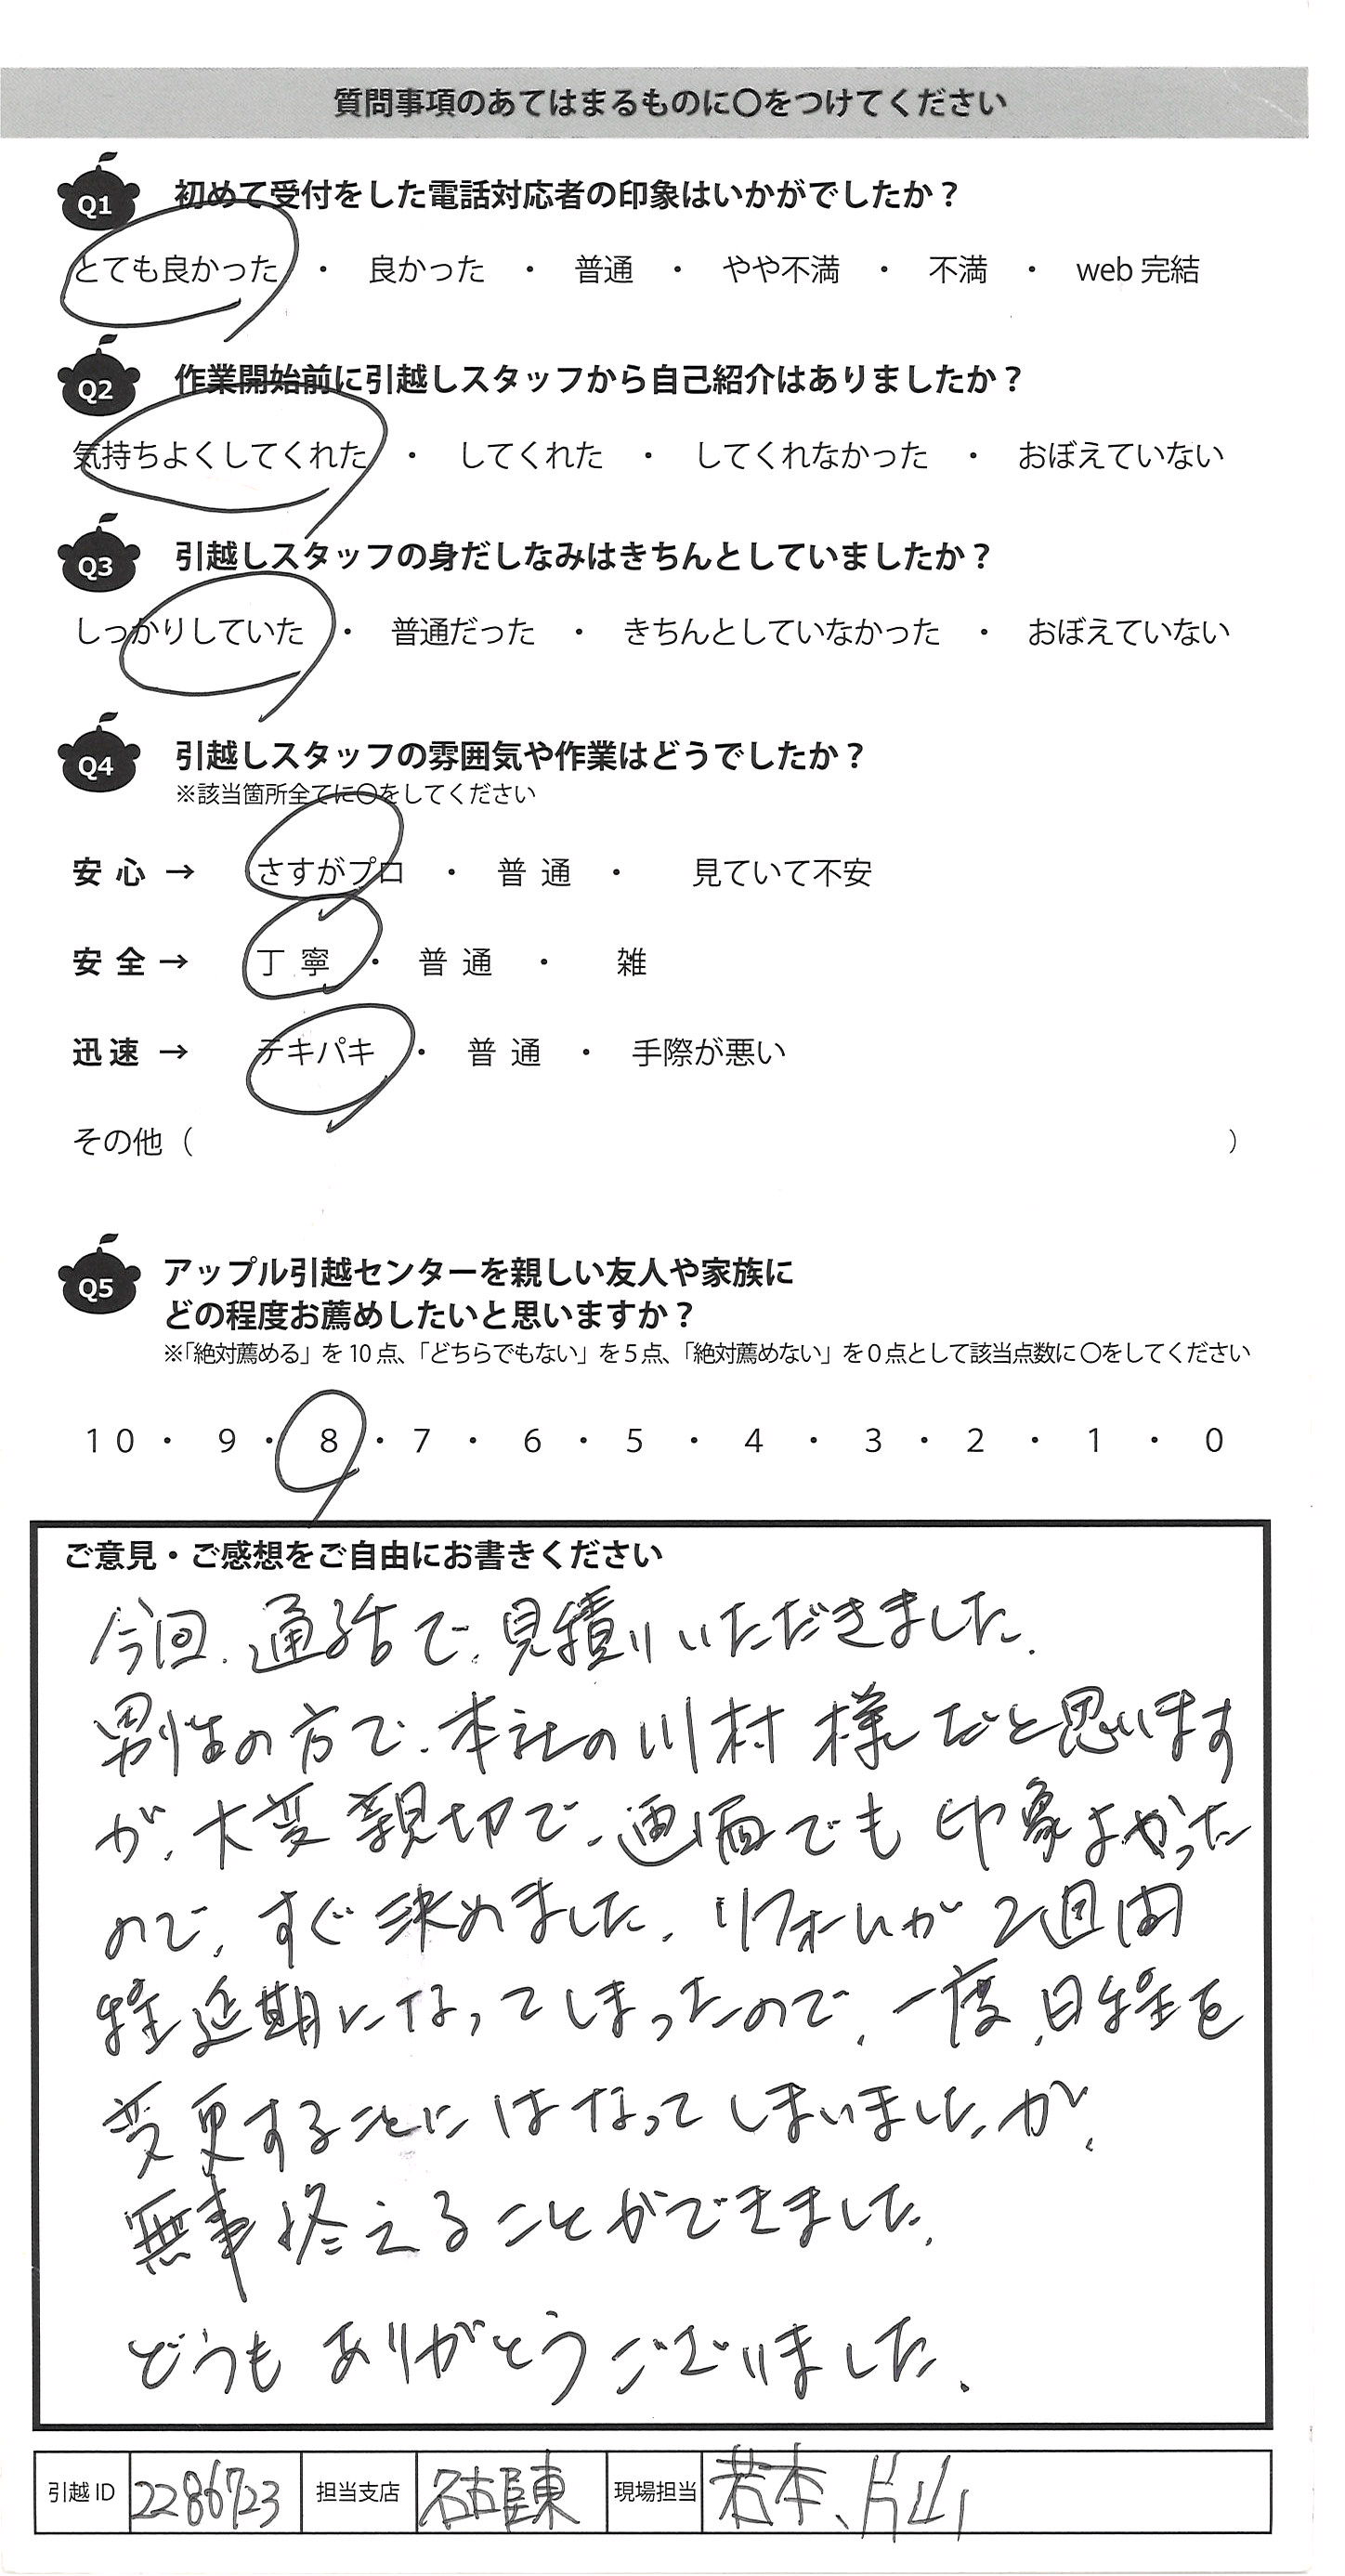 質問事項のあてはまるものに〇をつけてください
Q1 初めて受付をした電話対応者の印象はいかがでしたか？
とても良かった ・ 良かった ・ 普通 ・ やや不満 ・ 不満 ・ web 完結
Q2 作業開始前に引越しスタッフから自己紹介はありましたか？
気持ちよくしてくれた ・ してくれた ・ してくれなかった ・ おぼえていない
Q3 引越しスタッフの身だしなみはきちんとしていましたか？
しっかりしていた ・ 普通だった ・ きちんとしていなかった ・ おぼえていない
Q4 引越しスタッフの雰囲気や作業はどうでしたか？
※該当箇所全てに〇をしてください
安心 → さすがプロ ・ 普通 ・ 見ていて不安
安全 → 丁寧 ・ 普通 ・ 雑
迅速 → テキパキ ・ 普通 ・ 手際が悪い
その他（ ）
Q5 アップル引越センターを親しい友人や家族に
どの程度お薦めしたいと思いますか？
※「絶対薦める」を 10 点、「どちらでもない」を 5 点、「絶対薦めない」を 0 点として該当点数に 〇をしてください
10 ・ 9 ・ 8 ・ 7 ・ 6 ・ 5 ・ 4 ・ 3 ・ 2 ・ 1 ・ 0
ご意見・ご感想をご自由にお書きください
今回、通話で、見積りいただきました。
男性の方で、本社の川村様だと思います
が、大変親切で、画面でも印象よかった
ので、すぐ決めました。リフォームが2週間
程延期になってしまったので、一度、日程を
変更することにはなってしまいましたが、
無事終えることができました。
どうもありがとうございました。
引越 ID 2286723 担当支店 名古屋東 現場担当 若本、片山